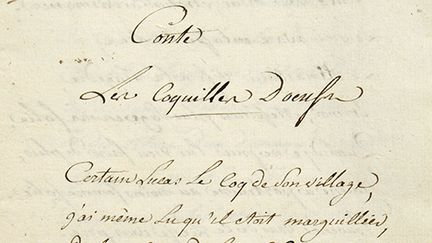 Conte
Les Coquilles Doeufs
Certain Lucas Le Coq de Son village,
j'ai même Lu qu'il étoit marguillier,